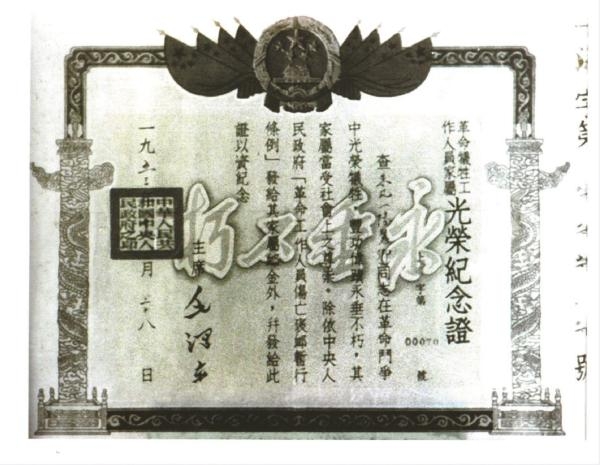 革命犧牲工
作人員家屬
光榮紀念證
字第 00070 號
查 同志在革命鬥爭
中光榮犧牲,豐功偉績永垂不朽,其
家屬當受社會上之尊崇。除依中央人
民政府「革命工作人員傷亡褒卹暫行
條例」發給其家屬卹金外,幷發給此
證以資紀念
主席 毛澤東
一九五 月 二八 日
中華人民共
和國中央人
民政府之印
永垂不朽
號